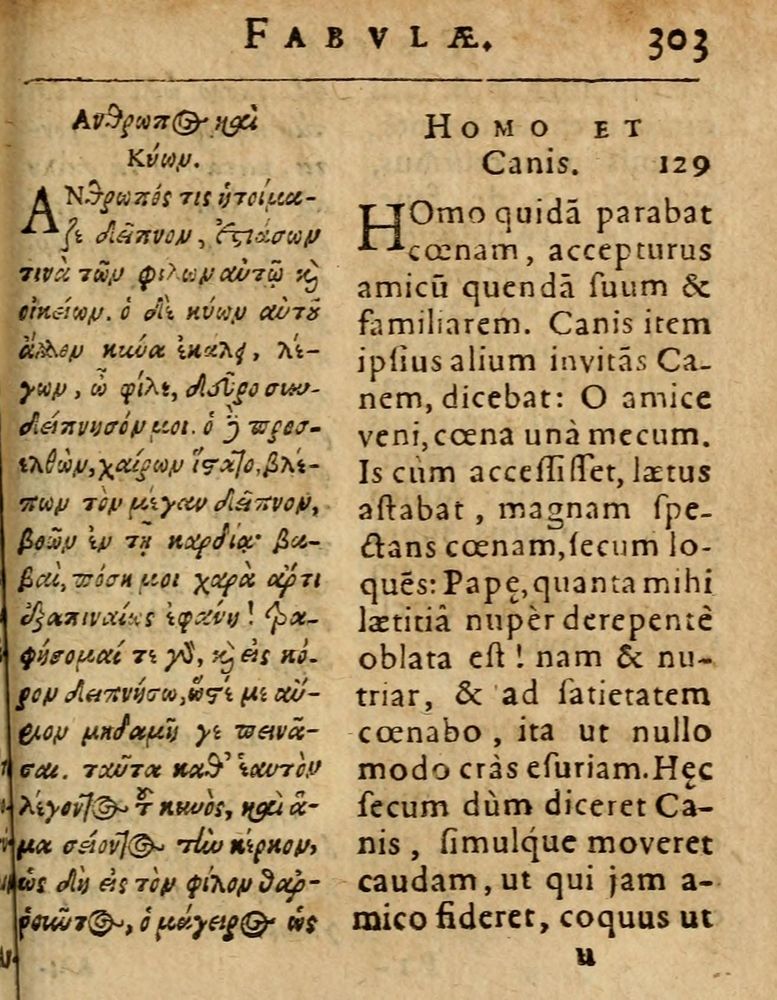 FABVLÆ. 303
Ανθρωπος καὶ
Κύων.
ΑΝθρωπός τις ἡτοίμα-
ζε δεῖπνον, ἑστιάσων
τινὰ τῶν φίλων αὐτῷ καὶ
οἰκείων. ὁ δὲ κύων αὐτοῦ
ἄλλον κύνα ἐκαλει, λέ-
γων, ὦ φίλε, δεῦρο συν-
δείπνησόν μοι. ὁ δὲ προσ-
ελθὼν, χαίρων ἵστατο, βλέ-
πων τὸν μέγαν δεῖπνον,
βοῶν ἐν τῇ καρδίᾳ· βα-
βαὶ, πόση μοι χαρὰ ἄρτι
ἐξαπιναίως ἐφάνη! τρα-
φήσομαί τε γὰρ, καὶ εἰς κό-
ρον δειπνήσω, ὥστέ με αὔ-
ριον μηδαμῆ γε πεινᾶ-
σαι. ταῦτα καθ' ἑαυτὸν
λέγοντος τοῦ κυνὸς, καὶ ἅ-
μα σείοντος τὴν κέρκον,
ὡς δὴ εἰς τὸν φίλον θαρ-
ροῦντος, ὁ μάγειρος ὡς
HOMO ET
Canis. 129
HOmo quidã parabat
cœnam, accepturus
amicũ quendã ſuum &
familiarem. Canis item
ipſius alium invitãs Ca-
nem, dicebat: O amice
veni, cœna unà mecum.
Is cùm acceſſiſſet, lætus
aſtabat, magnam ſpe-
ctans cœnam, ſecum lo-
quẽs: Papę, quanta mihi
lætitiâ nupèr derepentè
oblata eſt! nam & nu-
triar, & ad ſatietatem
cœnabo, ita ut nullo
modo cràs eſuriam. Hęc
ſecum dùm diceret Ca-
nis, ſimulq́ue moveret
caudam, ut qui jam a-
mico fideret, coquus ut
u